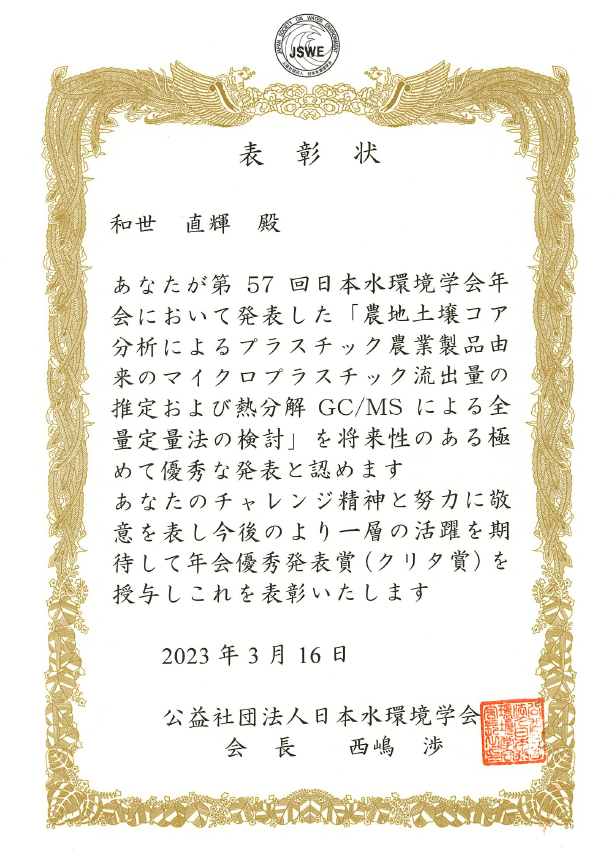 JAPAN SOCIETY ON WATER ENVIRONMENT
JSWE
表彰状
和世 直輝 殿
あなたが第 57 回日本水環境学会年
会において発表した「農地土壌コア
分析によるプラスチック農業製品由
来のマイクロプラスチック流出量の
推定および熱分解 GC/MS による全
量定量法の検討」を将来性のある極
めて優秀な発表と認めます
あなたのチャレンジ精神と努力に敬
意を表し今後のより一層の活躍を期
待して年会優秀発表賞(クリタ賞)を
授与しこれを表彰いたします
2023 年 3 月 16 日
公益社団法人日本水環境学会
会長 西嶋 渉